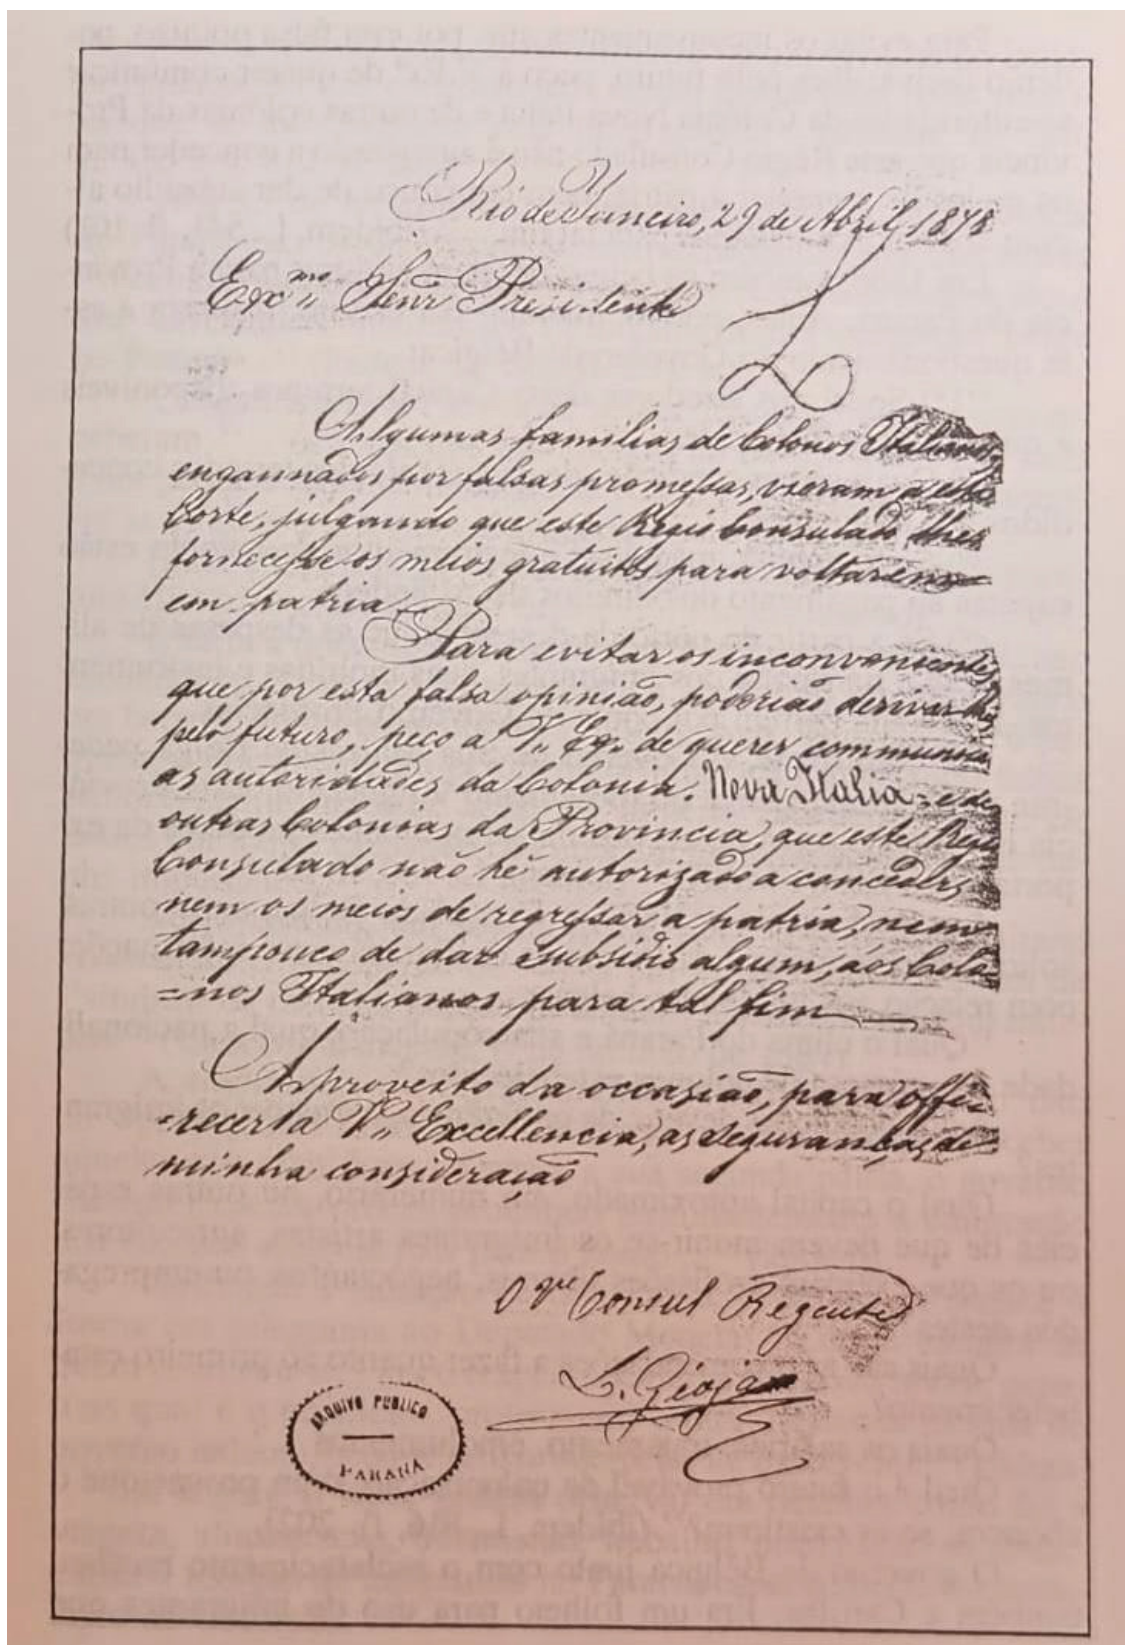 Rio de Janeiro, 29 de Abril 1878
Exmo,, Senr Presidente
Algumas familias de Colonos Italianos,
engannados por falsas promessas, vieram a esta
Corte, julgando que este Regio Consulado lhes
fornecesse os meios gratuitos para voltarem
em patria.
Para evitar os inconvenientes,
que por esta falsa opinião, poderião derivar
pelo futuro, peço a V,, Ex,, de querer communicar
as autoridades da Colonia. Nova Italia = e de
outras Colonias da Provincia, que este Regio
Consulado não hé autorizado a conceder,
nem os meios de regressar a patria, nem
tampouco de dar subsidio algum, aos Colo
=nos Italianos para tal fim
Aproveito da occasião, para offe=
=recer a V,, Excellencia, as seguranças de
minha consideração
O Consul Regente
L. Gioja
ARQUIVO PUBLICO
PARANÁ